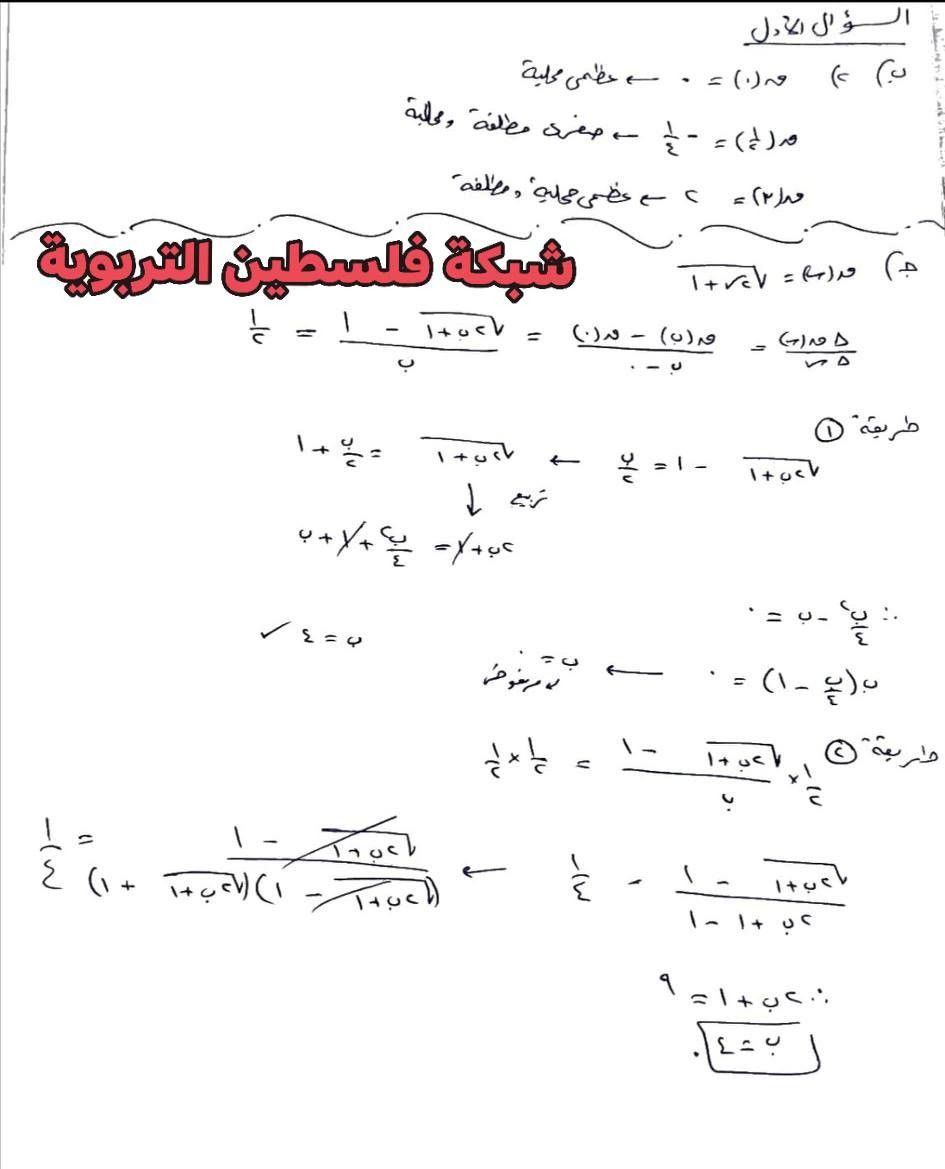 السؤال الأول
ب) ٢) ق(٠) = ٠ ← عظمى محلية
ق(١/٢) = -١/٤ ← صغرى مطلقة ومحلية
ق(٢) = ٢ ← عظمى محلية ومطلقة
شبكة فلسطين التربوية
ج) ق(س) = √(٢س+١)
Δق(س)/Δس = (ق(ب) - ق(٠))/(ب - ٠) = (√(٢ب+١) - ١)/ب = ١/٢
طريقة ①
√(٢ب+١) - ١ = ب/٢ ← √(٢ب+١) = ب/٢ + ١
↓ تربيع
٢ب+١ = ب²/٤ + ١ + ب
∴ ب²/٤ - ب = ٠
ب(ب/٤ - ١) = ٠ ← ب = ٠ مرفوض ب = ٤ ✓
طريقة ②
١/٢ × (√(٢ب+١) - ١)/ب = ١/٢ × ١/٢
(√(٢ب+١) - ١)/(٢ب + ١ - ١) = ١/٤ ← (√(٢ب+١) - ١)/((√(٢ب+١) - ١)(√(٢ب+١) + ١)) = ١/٤
∴ ٢ب + ١ = ٩
ب = ٤